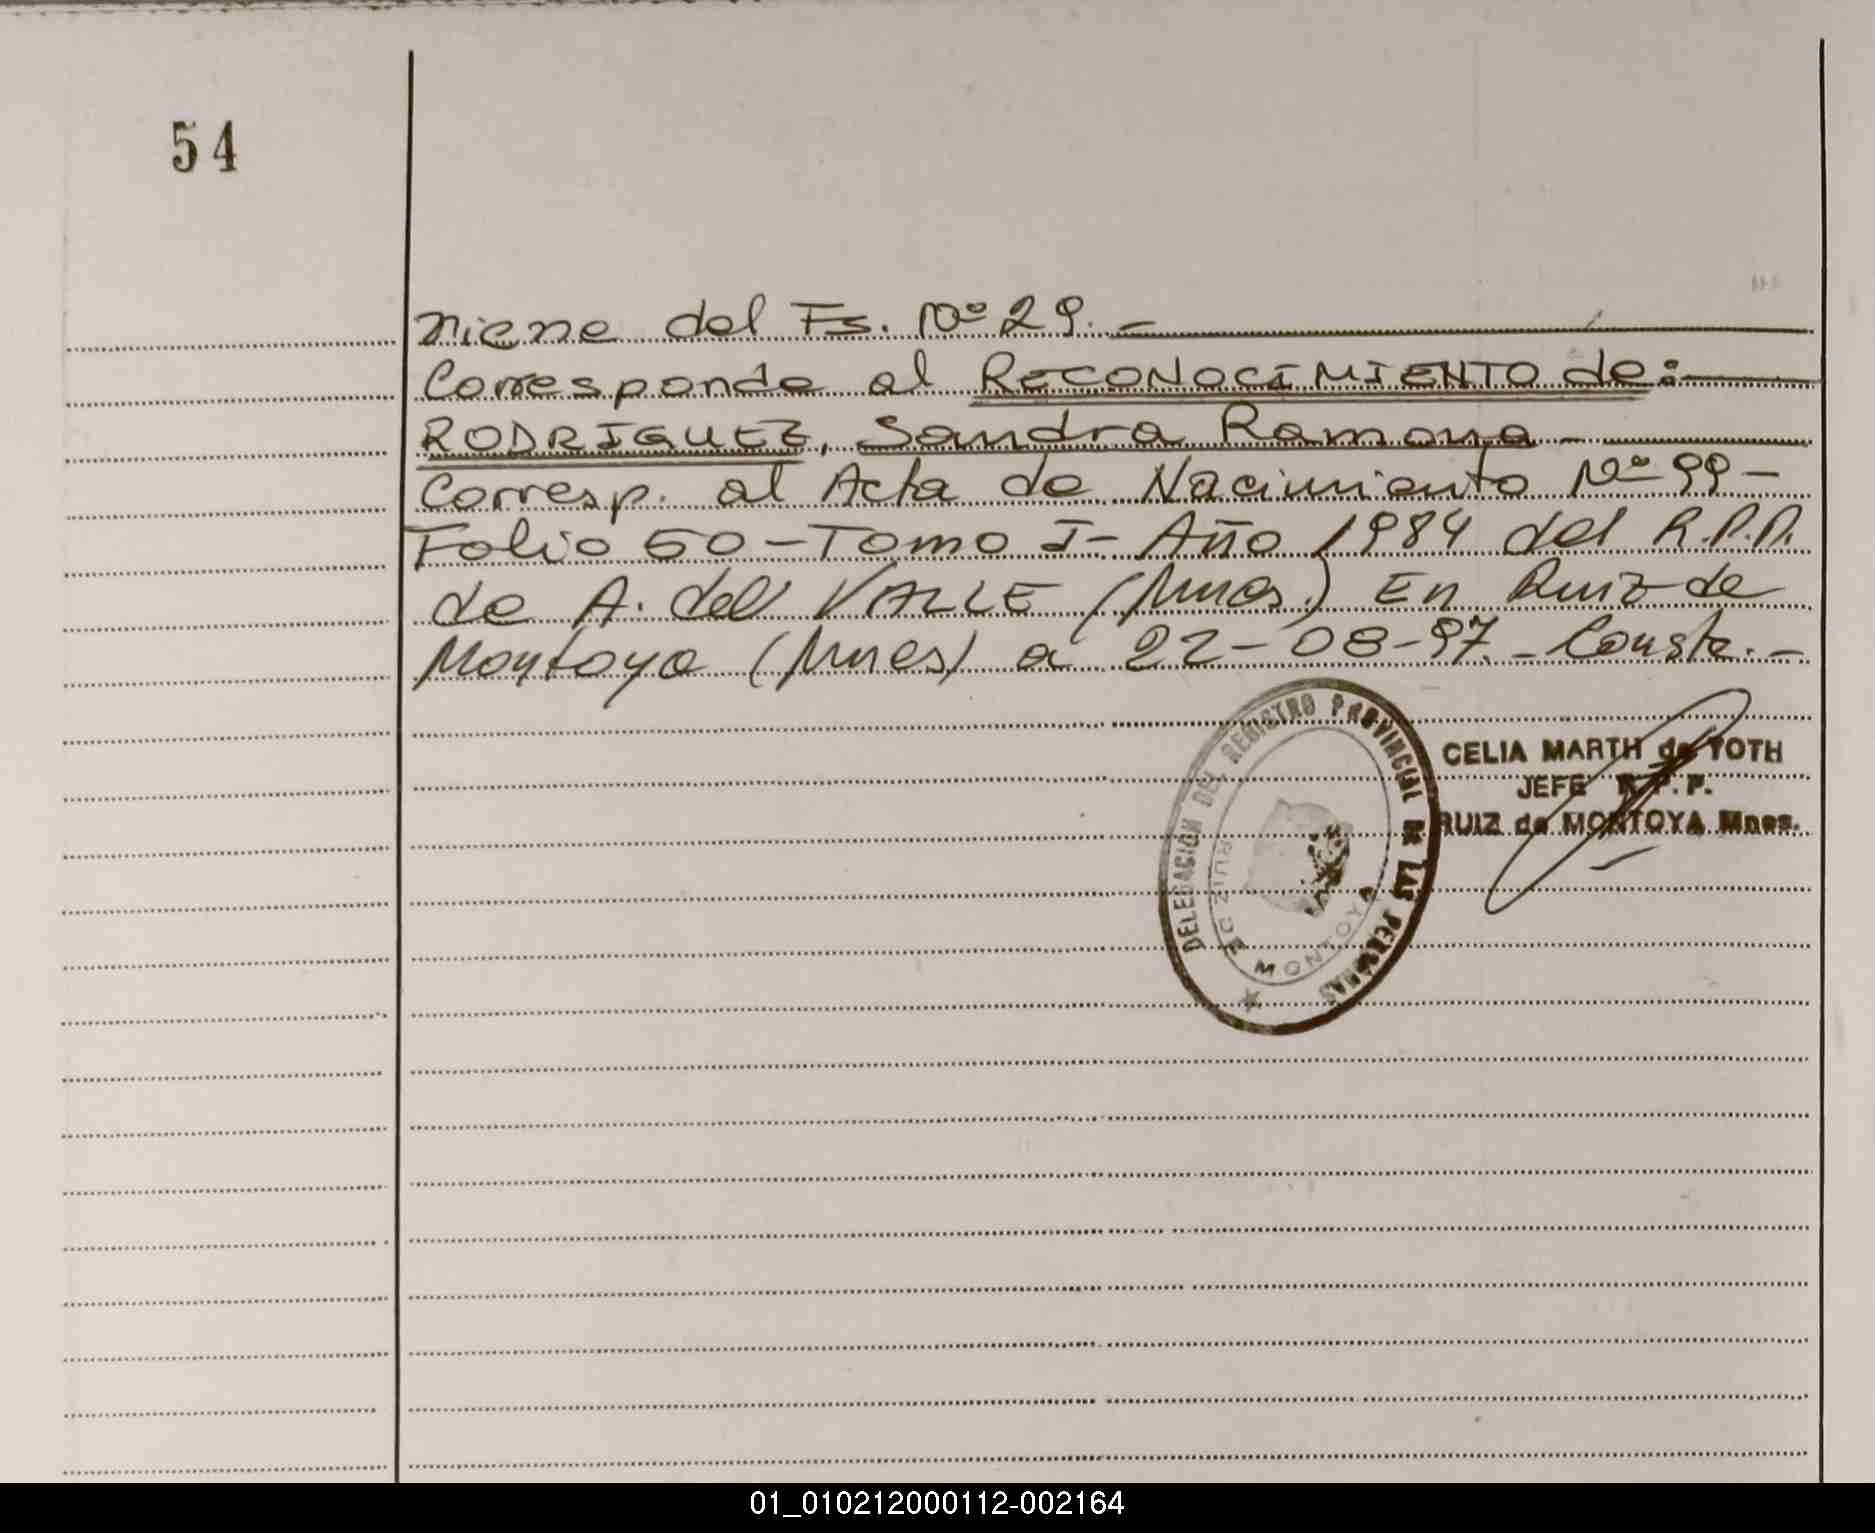 54
Viene del Fs. Nº 29. -
Corresponde al RECONOCIMIENTO de:
RODRIGUEZ, Sandra Ramona -
Corresp. al Acta de Nacimiento Nº 99 -
Folio 50 - Tomo I - Año 1984 del R.P.P.
de A. del VALLE (Mnes.) En Ruiz de
Montoya (Mnes) a 22-08-97. - Conste. -
DELEGACIÓN DEL REGISTRO PROVINCIAL DE LAS PERSONAS
RUIZ DE MONTOYA
CELIA MARTH de TOTH
JEFE R.P.P.
RUIZ de MONTOYA Mnes.
01_010212000112-002164